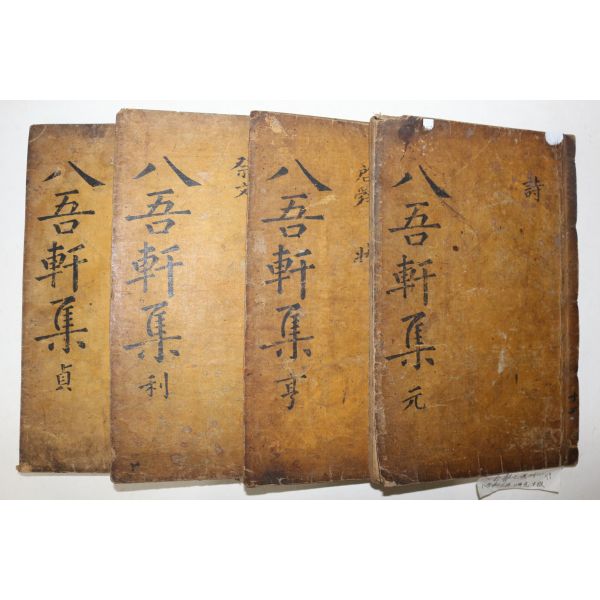 詩
八吾軒集 元
狀
八吾軒集 亨
祭文
八吾軒集 利
八吾軒集 貞